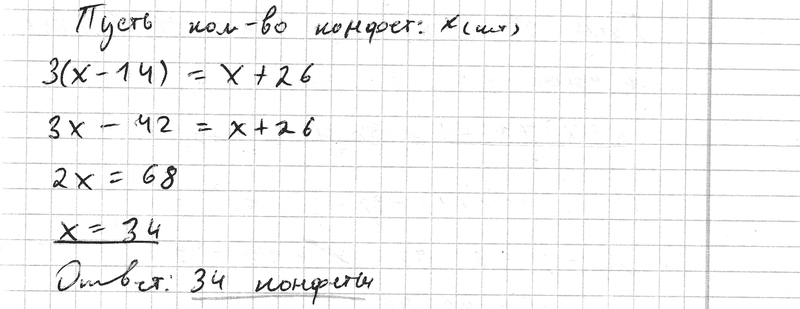 Пусть кол-во конфет: x (шт)
3(x-14) = x + 26
3x - 42 = x + 26
2x = 68
x = 34
Ответ: 34 конфеты